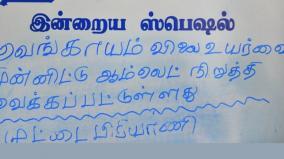 இன்றைய ஸ்பெஷல்
வெங்காயம் விலை உயர்வை
முன்னிட்டு ஆம்லெட் நிறுத்தி
வைக்கப்பட்டுள்ளது
(முட்டை பிரியாணி)